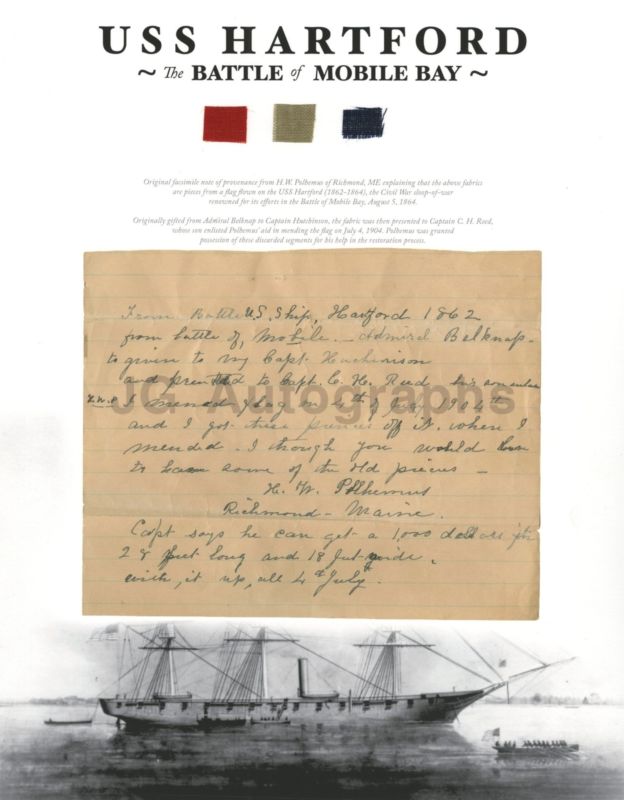 USS HARTFORD
~ The BATTLE of MOBILE BAY ~
Original facsimile note of provenance from H.W. Polhemus of Richmond, ME explaining that the above fabrics
are pieces from a flag flown on the USS Hartford (1862-1864), the Civil War sloop-of-war
renowned for its efforts in the Battle of Mobile Bay, August 5, 1864.
Originally gifted from Admiral Belknap to Captain Hutchinson, the fabric was then presented to Captain C. H. Reed,
whose son enlisted Polhemus' aid in mending the flag on July 4, 1904. Polhemus was granted
possession of these discarded segments for his help in the restoration process.
From Battle U.S. Ship, Hartford 1862
from battle of, Mobile. - Admiral Belknap -
to given to my Capt. Hutchinson
and presented to Capt. C. H. Reed his son
H.W.P. I mened flag on 4th of July 1904th
and I got these pieces off it. when I
mended - I though you would love
to have some of the old pieces -
H. W. Polhemus
Richmond - Maine.
Capt says he can get a 1,000 dollars for
28 feet long and 18 feet wide.
with, it up, all 4th July.
JG Autographs